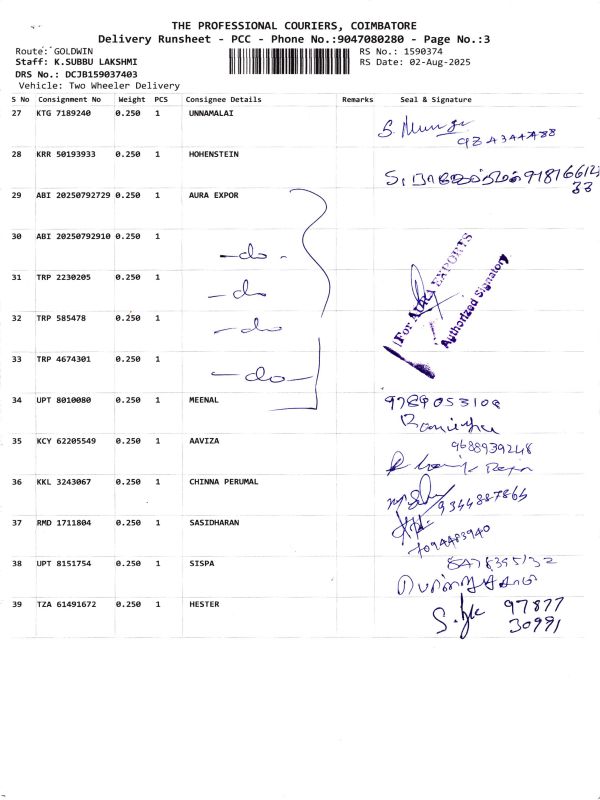 THE PROFESSIONAL COURIERS, COIMBATORE
Delivery Runsheet - PCC - Phone No.:9047080280 - Page No.:3
Route: GOLDWIN
Staff: K.SUBBU LAKSHMI
DRS No.: DCJB159037403
Vehicle: Two Wheeler Delivery
RS No.: 1590374
RS Date: 02-Aug-2025
S No Consignment No Weight PCS Consignee Details Remarks Seal & Signature
27 KTG 7189240 0.250 1 UNNAMALAI
28 KRR 50193933 0.250 1 HOHENSTEIN
29 ABI 20250792729 0.250 1 AURA EXPOR
30 ABI 20250792910 0.250 1 -do-
31 TRP 2230205 0.250 1 -do
32 TRP 585478 0.250 1 -do
33 TRP 4674301 0.250 1 -do-
For AURA EXPORTS
Authorized Signatory
34 UPT 8010080 0.250 1 MEENAL 9789053108
35 KCY 62205549 0.250 1 AAVIZA 9688939248
36 KKL 3243067 0.250 1 CHINNA PERUMAL 9344887864
37 RMD 1711804 0.250 1 SASIDHARAN 7094483940
38 UPT 8151754 0.250 1 SISPA
39 TZA 61491672 0.250 1 HESTER 97877
30991